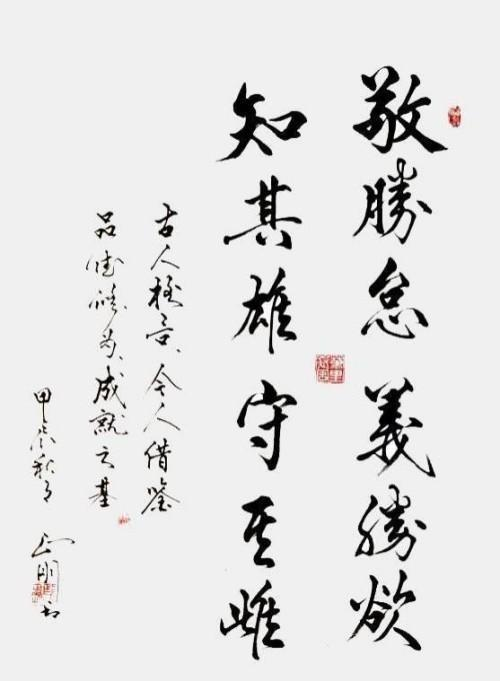 敬勝怠義勝欲
知其雄守其雌
古人格言、今人借鑒
品德修为、成就之基
甲辰秋月